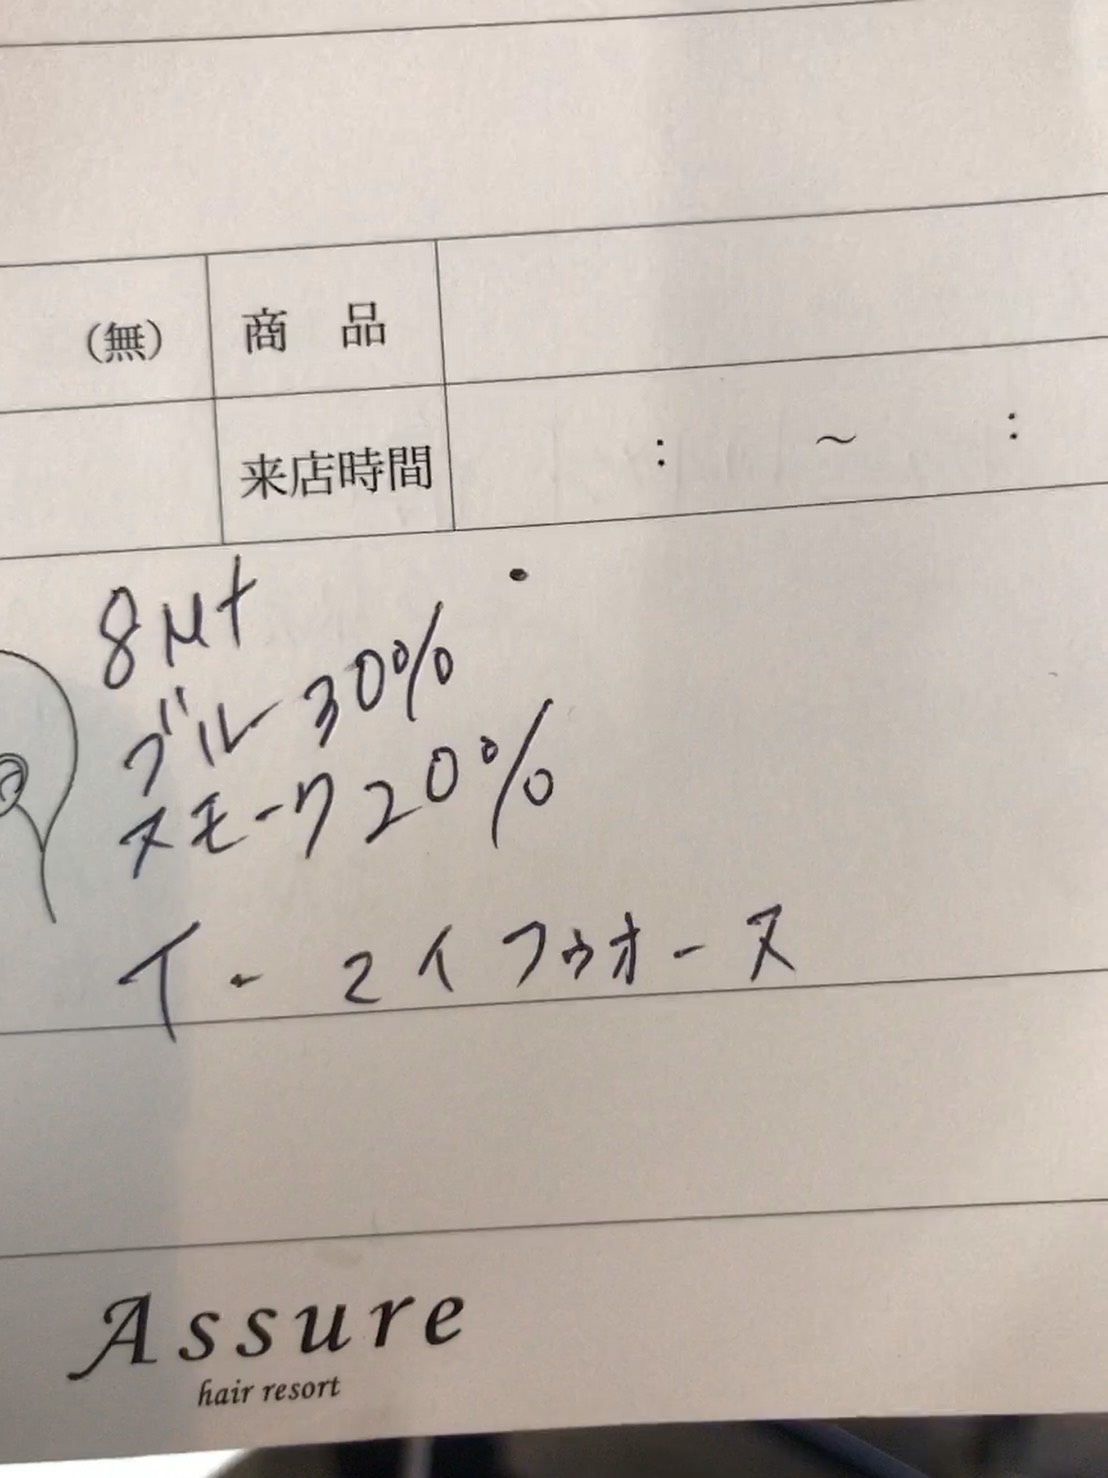 (無) 商 品
来店時間 : ～ :
8Mt
ブルー30%
スモーク20%
イー マイフゥオース
Assure
hair resort